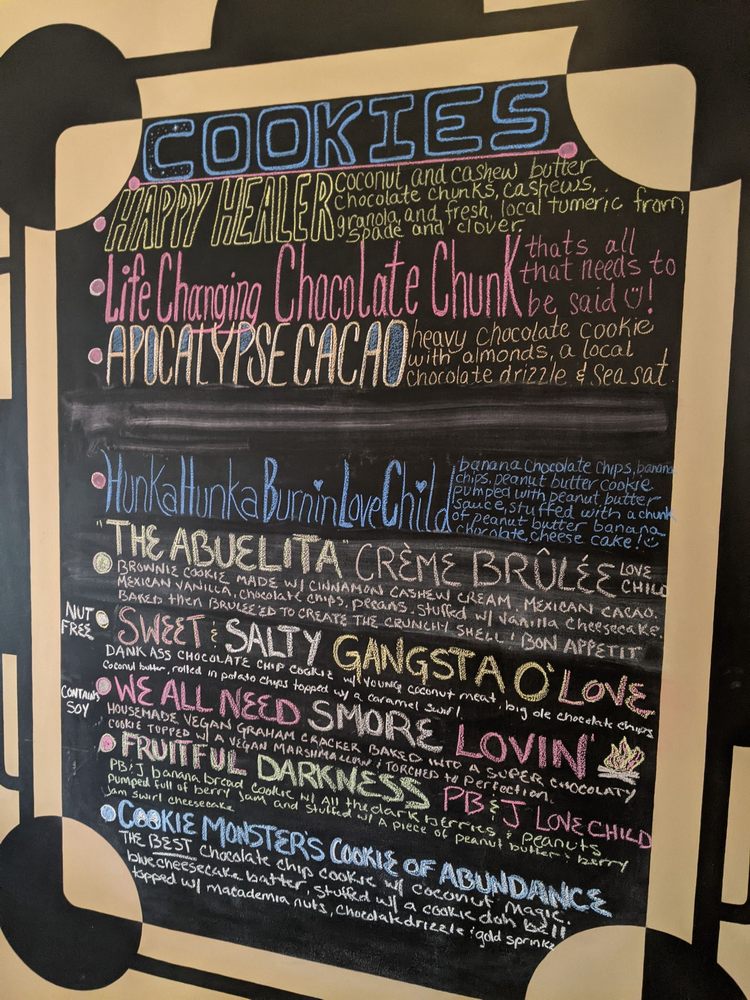 COOKIES
HAPPY HEALER
coconut, and cashew butter
chocolate chunks, cashews,
granola, and fresh, local tumeric from
spade and clover.
Life Changing Chocolate Chunk
thats all
that needs to
be said !
APOCALYPSE CACAO
heavy chocolate cookie
with almonds, a local
chocolate drizzle & Sea sat.
HunkaHunkaBurninLoveChild
banana chocolate chips, banana
chips, peanut butter cookie
pumped with peanut butter
sauce, stuffed with a chunk
of peanut butter banana
chocolate cheese cake!
"THE ABUELITA" CRÈME BRÛLÉE LOVE
CHILD
BROWNIE COOKIE MADE W/ CINNAMON CASHEW CREAM, MEXICAN CACAO.
MEXICAN VANILLA, chocolate chips, pecans. Stuffed w/ vanilla cheesecake.
BAKED then BRULEE'ED TO CREATE THE CRUNCHY SHELL! BON APPETIT
NUT
FREE
SWEET & SALTY GANGSTA O' LOVE
DANK ASS CHOCOLATE CHIP COOKIE w/ YOUNG coconut meat, big ole chocolate chips
Coconut butter, rolled in potato chips topped w/ a caramel swirl
CONTAINS
SOY
WE ALL NEED SMORE LOVIN'
HOUSEMADE VEGAN GRAHAM CRACKER BAKED INTO A SUPER CHOCOLATY
COOKIE TOPPED w/ A VEGAN MARSHMALLOW & TORCHED to PERFECTION.
FRUITFUL DARKNESS PB & J LOVE CHILD
PB & J banana bread cookie w/ All the dark berries & peanuts
Pumped full of berry Jam and stuffed w/ A piece of peanut butter & berry
Jam swirl cheesecake
COOKIE MONSTER'S COOKIE OF ABUNDANCE
THE BEST Chocolate chip cookie w/ coconut magic.
blue cheesecake batter, stuffed w/ a cookie doh ball
topped w/ macademia nuts, chocolate drizzle & gold sprinkles